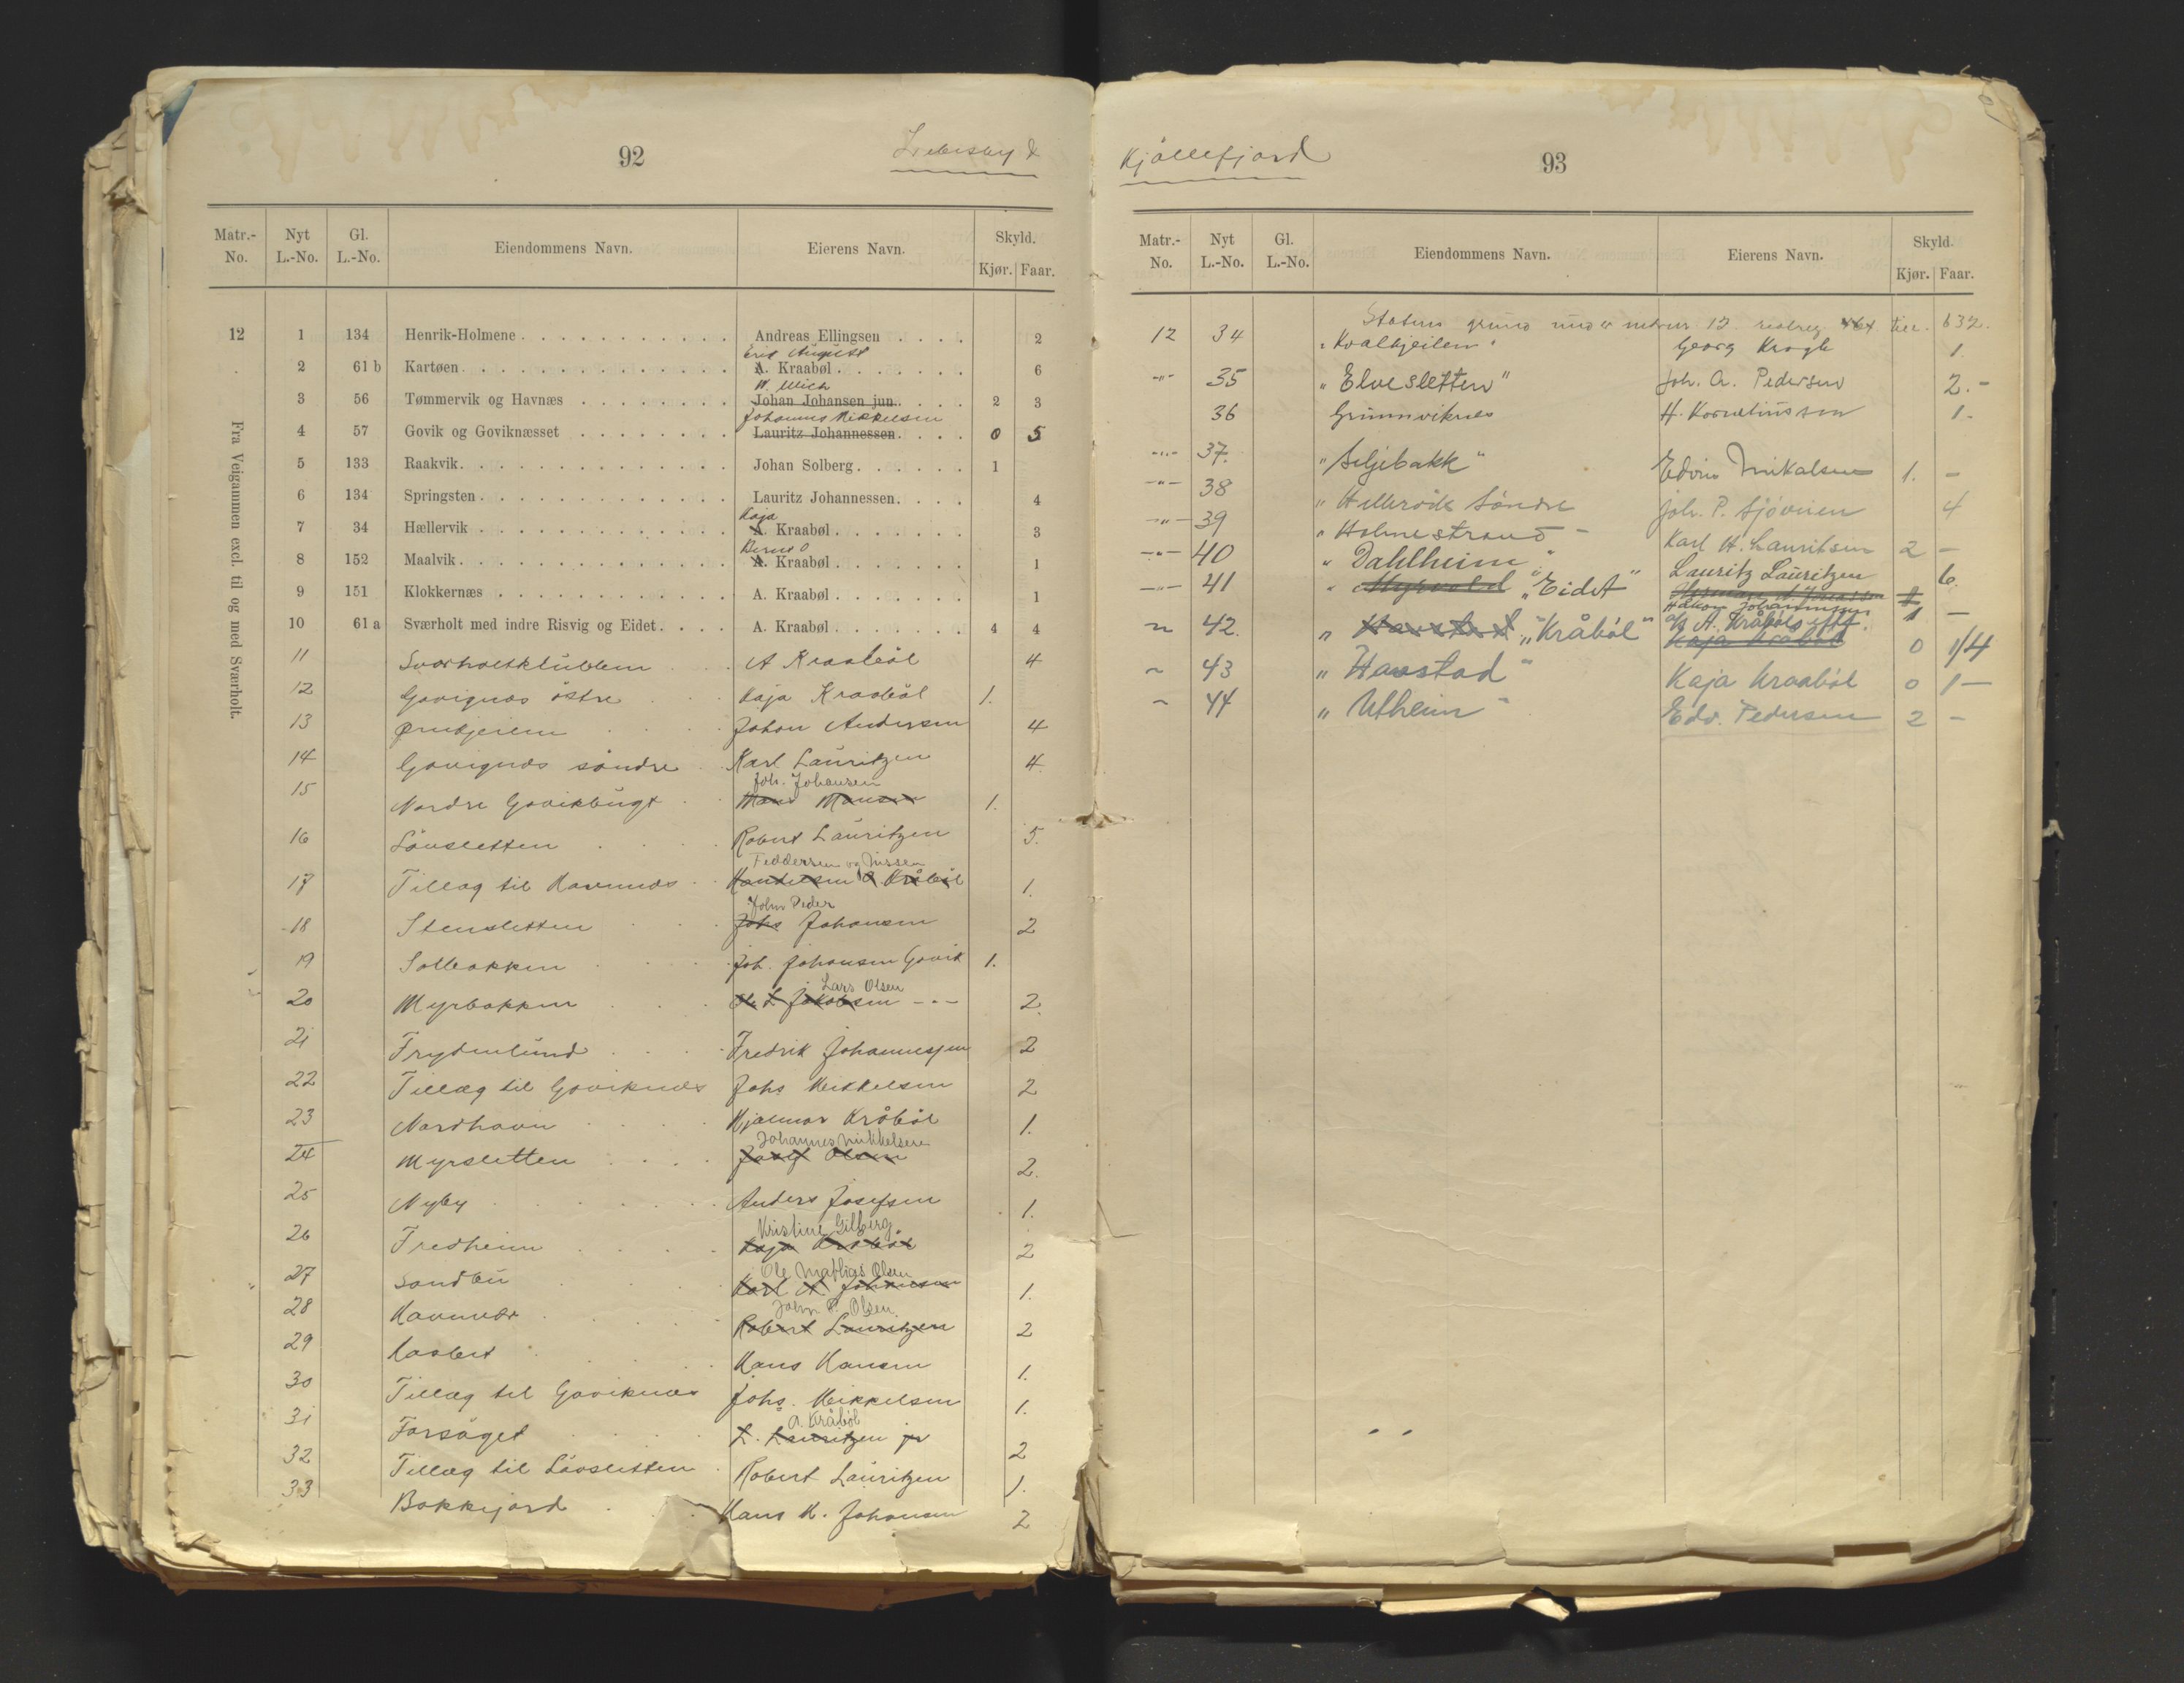 92
Lebesby &
Matr.-No. Nyt L.-No. Gl. L.-No. Eiendommens Navn. Eierens Navn. Skyld. Kjør. Faar.
Fra Veigammen excl. til og med Sværholt.
12 1 134 Henrik-Holmene Andreas Ellingsen 2
Erik August
2 61 b Kartøen A. Kraabøl 6
W. Mich
3 56 Tømmervik og Havnæs Johan Johansen jun. 2 3
Johannes Mikkelsen
4 57 Govik og Goviknæsset Lauritz Johannessen 0 5
5 133 Raakvik Johan Solberg 1
6 134 Springsten Lauritz Johannessen 4
Kaja
7 34 Hællervik A. Kraabøl 3
8 152 Maalvik A. Kraabøl 1
9 151 Klokkernæs A. Kraabøl 1
10 61 a Sværholt med indre Risvig og Eidet A. Kraabøl 4 4
11 Sværholtklubben A Kraabøl 4
12 Govignæs östre Kaja Kraabøl 1.
13 Johan Andersen 4
14 Govignæs söndre Karl Lauritzen 4.
Joh. Johansen
15 Nordre Govikbugt Hans Hansen 1.
16 Lövsletten Robert Lauritzen 5.
Feddersen og Nissen
17 Tillæg til Havnnæs A. Kråböl 1.
John Peder
18 Stensletten Johs Johansen 2
19 Solbakken Joh. Johansen Govik 1.
Lars Olsen
20 Myrbakken Jakobsen -"- 2.
21 Frydenlund Fredrik Johannesen 2
22 Tillæg til Goviknæs Johs Mikkelsen 2
23 Nordhavn Hjalmar Kråböl 1.
Johannes Mikkelsen
24 Myrsletten Josef Olsen 2.
25 Nyby Anders Josefsen 1.
Kristine Gilberg.
26 Fredheim Kaja Kråböl 2
Ole Mathias Olsen
27 Sandbu Karl A Johansen 1.
John P. Olsen
28 Havnnær Robert Lauritzen 2
29 Hans Hansen 1.
30 Tillæg til Goviknæs Johs. Mikkelsen 1.
A. Kråböl
31 Forsöget L. Lauritzen jr 2
32 Tillæg til Lövsletten Robert Lauritzen 1.
33 Bakkejord Hans H. Johansen 2
Kjöllefjord
93
Matr.-No. Nyt L.-No. Gl. L.-No. Eiendommens Navn. Eierens Navn. Skyld. Kjør. Faar.
Statens grund under matrnr 12 464 632.
12 34 "Kvalkjeilen" Georg Krogh 1.
-"- 35 "Elvesletten" Joh. A. Pedersen 2.-
36 Grunnviknes H. Korneliussen 1.-
-"- 37. "Seljebakk" Edvin Mikalsen 1. -
-"- 38 "Hellevik Söndre Joh. P. Sjövinen 4
-"- 39 "Holmestrand- Karl H. Lauritsen 2 -
-"- 40 "Dahlheim" Lauritz Lauritzen 6.
-"- 41 "Myrvold "Eidet" Håkon Johannessen 1 -
~ 42. "Havstad "Kråböl" A. Kråböls eftf. Kaja Kråböl 0 1/4
~ 43 "Havstad" Kaja Kraaböl 0 1 -
~ 44 "Utheim" Edv. Pedersen 2 -